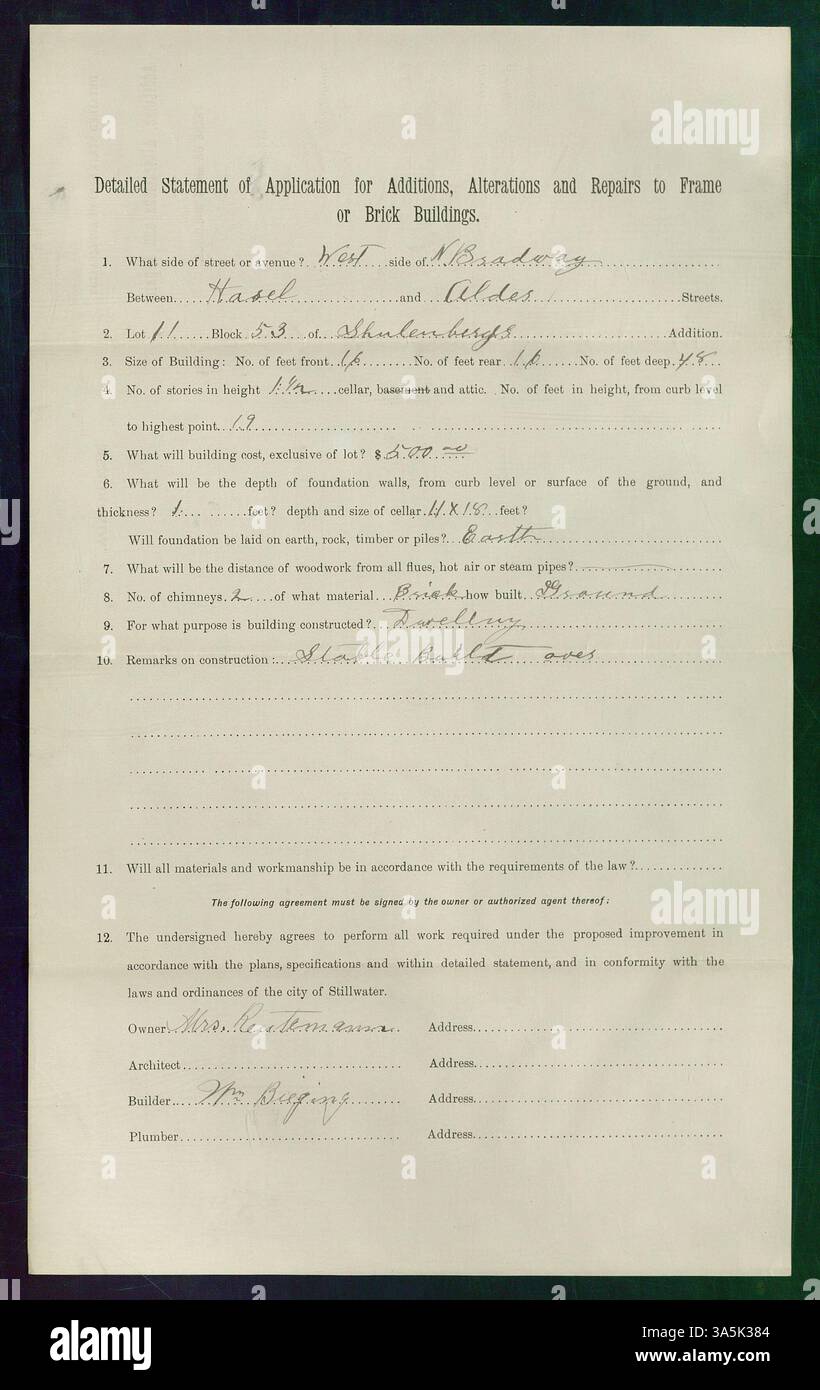 Detailed Statement of Application for Additions, Alterations and Repairs to Frame
or Brick Buildings.
1. What side of street or avenue? West side of N Bradway
Between Hasel and Alder Streets.
2. Lot 11 Block 53 of Shulenbergs Addition.
3. Size of Building: No. of feet front 16 No. of feet rear 16 No. of feet deep 48
4. No. of stories in height 1 1/2 cellar, basement and attic. No. of feet in height, from curb level
to highest point 19
5. What will building cost, exclusive of lot? $ 500.00
6. What will be the depth of foundation walls, from curb level or surface of the ground, and
thickness? 1 feet? depth and size of cellar X 18 feet?
Will foundation be laid on earth, rock, timber or piles? Earth
7. What will be the distance of woodwork from all flues, hot air or steam pipes?
8. No. of chimneys 2 of what material Brick how built Ground
9. For what purpose is building constructed? Dwelling
10. Remarks on construction: Stable Built over
11. Will all materials and workmanship be in accordance with the requirements of the law?
The following agreement must be signed by the owner or authorized agent thereof:
12. The undersigned hereby agrees to perform all work required under the proposed improvement in
accordance with the plans, specifications and within detailed statement, and in conformity with the
laws and ordinances of the city of Stillwater.
Owner Mrs. Address
Architect Address
Builder Wm Bieging Address
Plumber Address
alamy
alamy
alamy
a
a
a
a
a
a
a
a
a
alamy
Image ID: 3A5K384
www.alamy.com